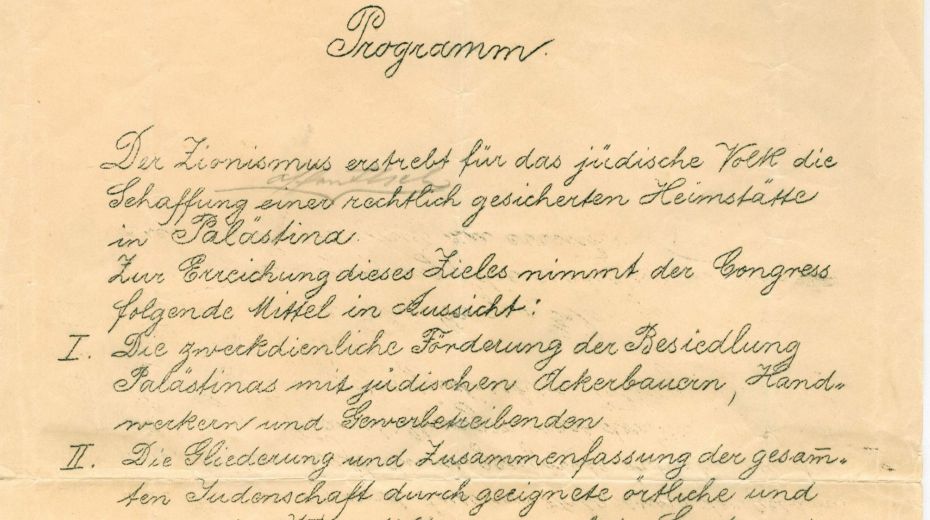 Programm.
Der Zionismus erstrebt für das jüdische Volk die
öffentlich
Schaffung einer rechtlich gesicherten Heimstätte
in Palästina.
Zur Erreichung dieses Zieles nimmt der Congress
folgende Mittel in Aussicht:
I. Die zweckdienliche Förderung der Besiedlung
Palästinas mit jüdischen Ackerbauern, Hand-
werkern und Gewerbetreibenden
II. Die Gliederung und Zusammenfassung der gesam̅-
ten Judenschaft durch geeignete örtliche und